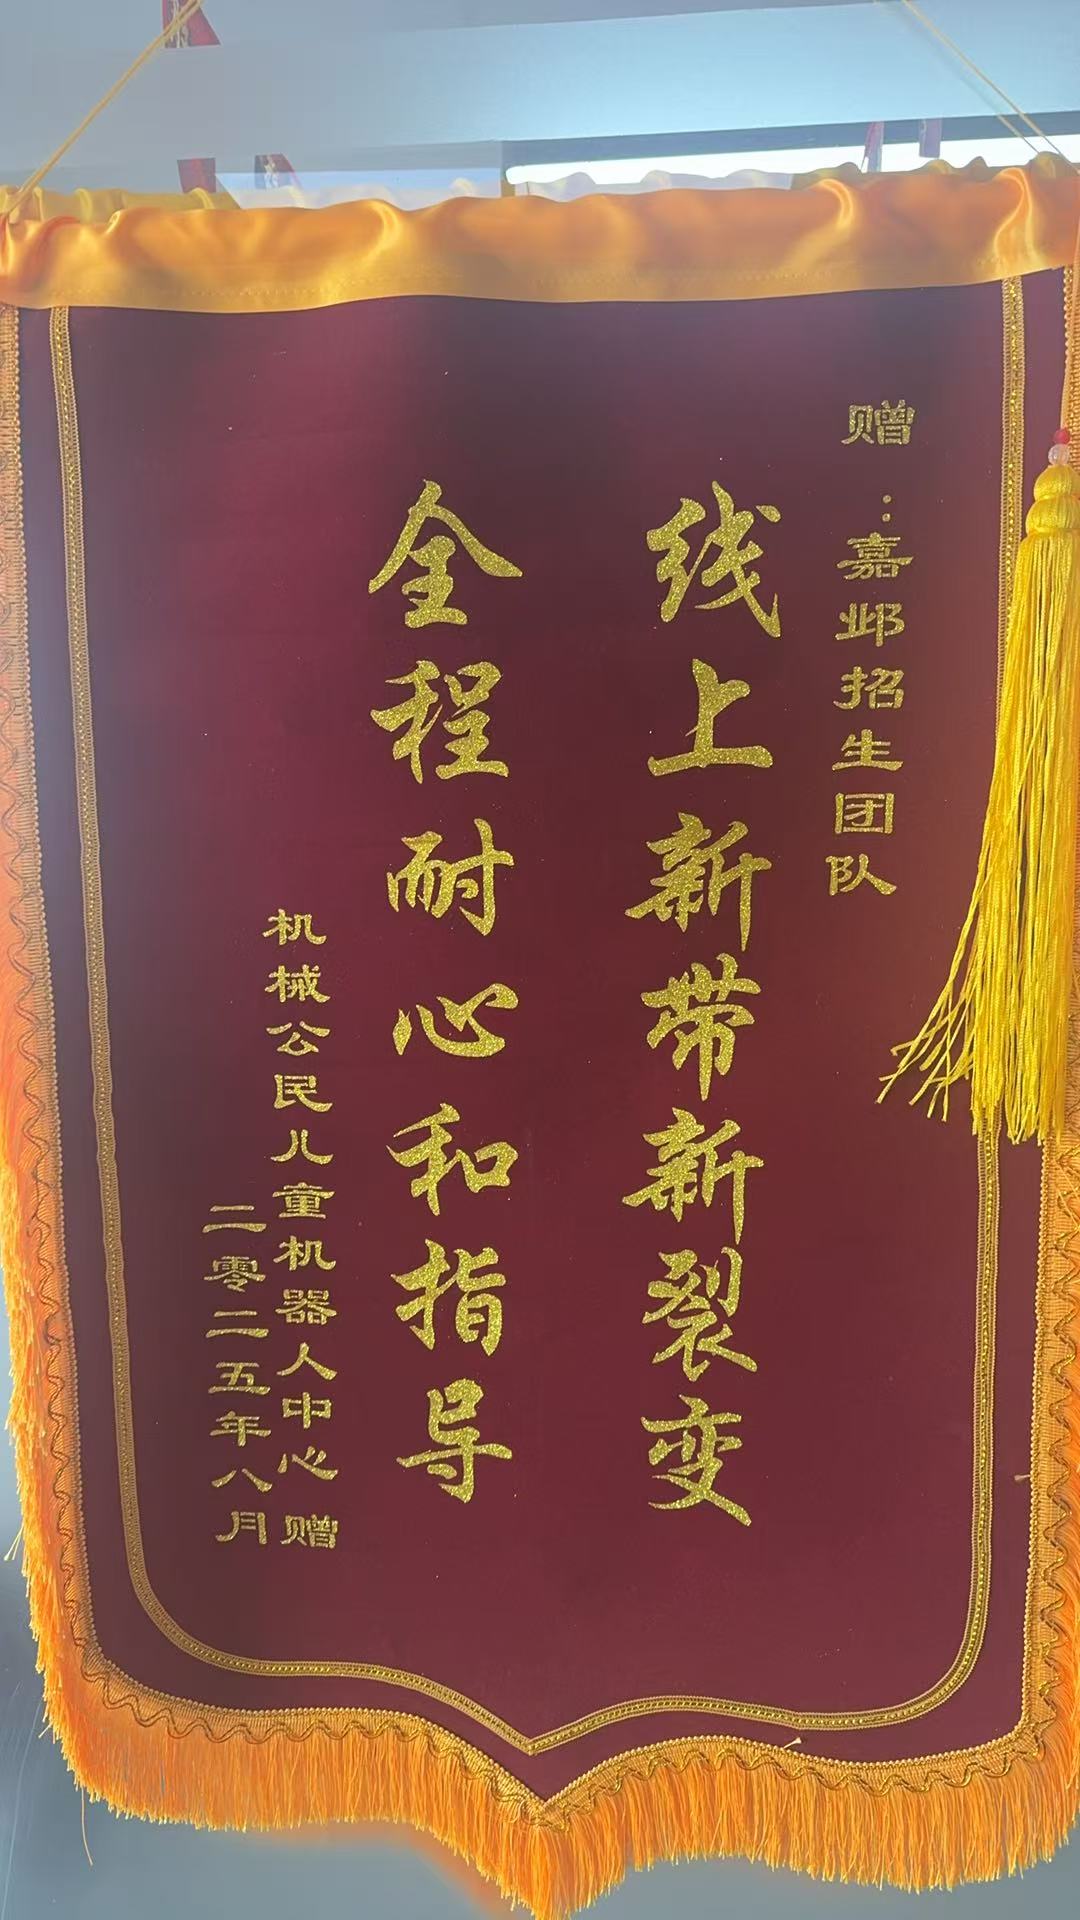 赠：嘉邺招生团队
线上新带新裂变
全程耐心和指导
机械公民儿童机器人中心 赠
二零二五年八月